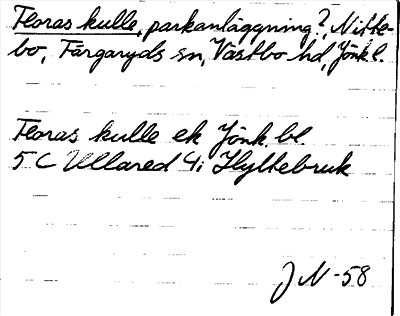 Floras kulle, parkanläggning?, Nitte-
bo, Färgaryds sn, Västbo hd, Jönk l.
Floras kulle ek Jönk bl.
5 C Ullared 4i Hyltebruk
J N -58